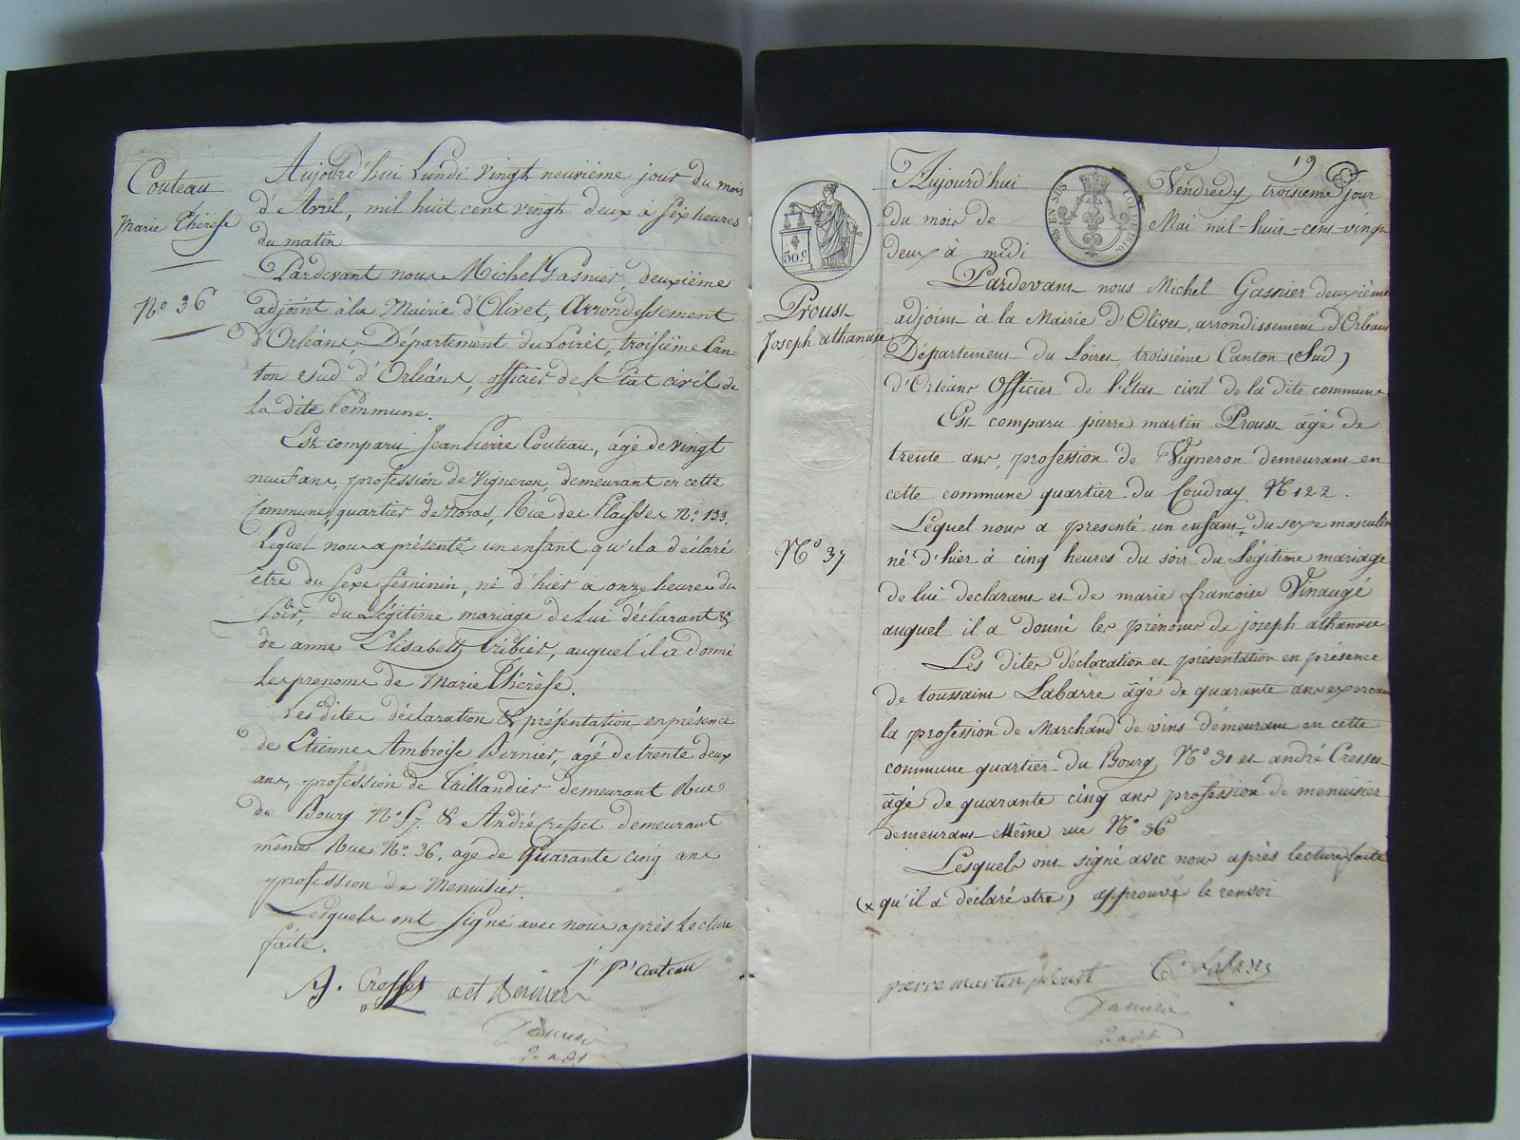 Couteau
Marie Thérèse
N.o 36
Aujourd'hui Lundi vingt neuvième jour du mois
d'Avril, mil huit cent vingt deux à six heures
du matin
Pardevant nous Michel Gasnier, deuxième
adjoint à la Mairie d'Olivet, Arrondissement
d'Orléans Département du Loiret, troisième Can-
ton sud d'Orléans, officier de l'Etat civil de
la dite Commune.
Est comparu Jean Pierre Couteau, agé de vingt
neuf ans, profession de vigneron, demeurant en cette
Commune, quartier de Rue des Plaisses N.o 133.
Lequel nous a présenté un enfant qu'il a déclaré
être du sexe féminin, né d'hier a onze heures du
soir, du Légitime mariage de lui déclarant &
de anne Elisabeth Tribier, auquel il a donné
les prenoms de Marie Thérèse.
Les dites déclaration & présentation en présence
de Etienne Ambroise Bernier, agé de trente deux
ans, profession de Taillandier demeurant Rue
du Bourg N.o 57 & André Cresset demeurant
même Rue N.o 36, agé de quarante cinq ans
profession de Menuisier
Lesquels ont signé avec nous après lecture
faite.
J P Couteau
A. Cresset a et Bernier
19
Aujourd'hui Vendredy troisieme jour
du mois de Mai mil-huit-cent-vingt
deux à midi
EN SUS
50.c
Proust
Joseph athanase
N.o 37
Pardevant nous Michel Gasnier deuxième
adjoint à la Mairie d'Olivet, arrondissement d'Orléans
Département du Loiret troisième Canton (Sud)
d'Orléans Officier de l'Etat civil de la dite commune
Est comparu pierre martin Proust âgé de
trente ans, profession de Vigneron demeurant en
cette commune quartier du Coudray N.o 122.
Lequel nous a présenté un enfant x du sexe masculin
né d'hier à cinq heures du soir du Légitime mariage
de lui declarant et de marie francoise Vinaugé
auquel il a donné les prénoms de joseph athanase
Les dites déclaration et présentation en présence
de toussaint Labarre âgé de quarante ans exercant
la profession de Marchand de vins demeurant en cette
commune quartier du Bourg N.o 31 et andré Cresset
âgé de quarante cinq ans profession de menuisier
demeurant Même rue N.o 36
Lesquels ont signé avec nous après lecture faite
(x qu'il a déclaré etre) approuvé le renvoi
pierre martin proust